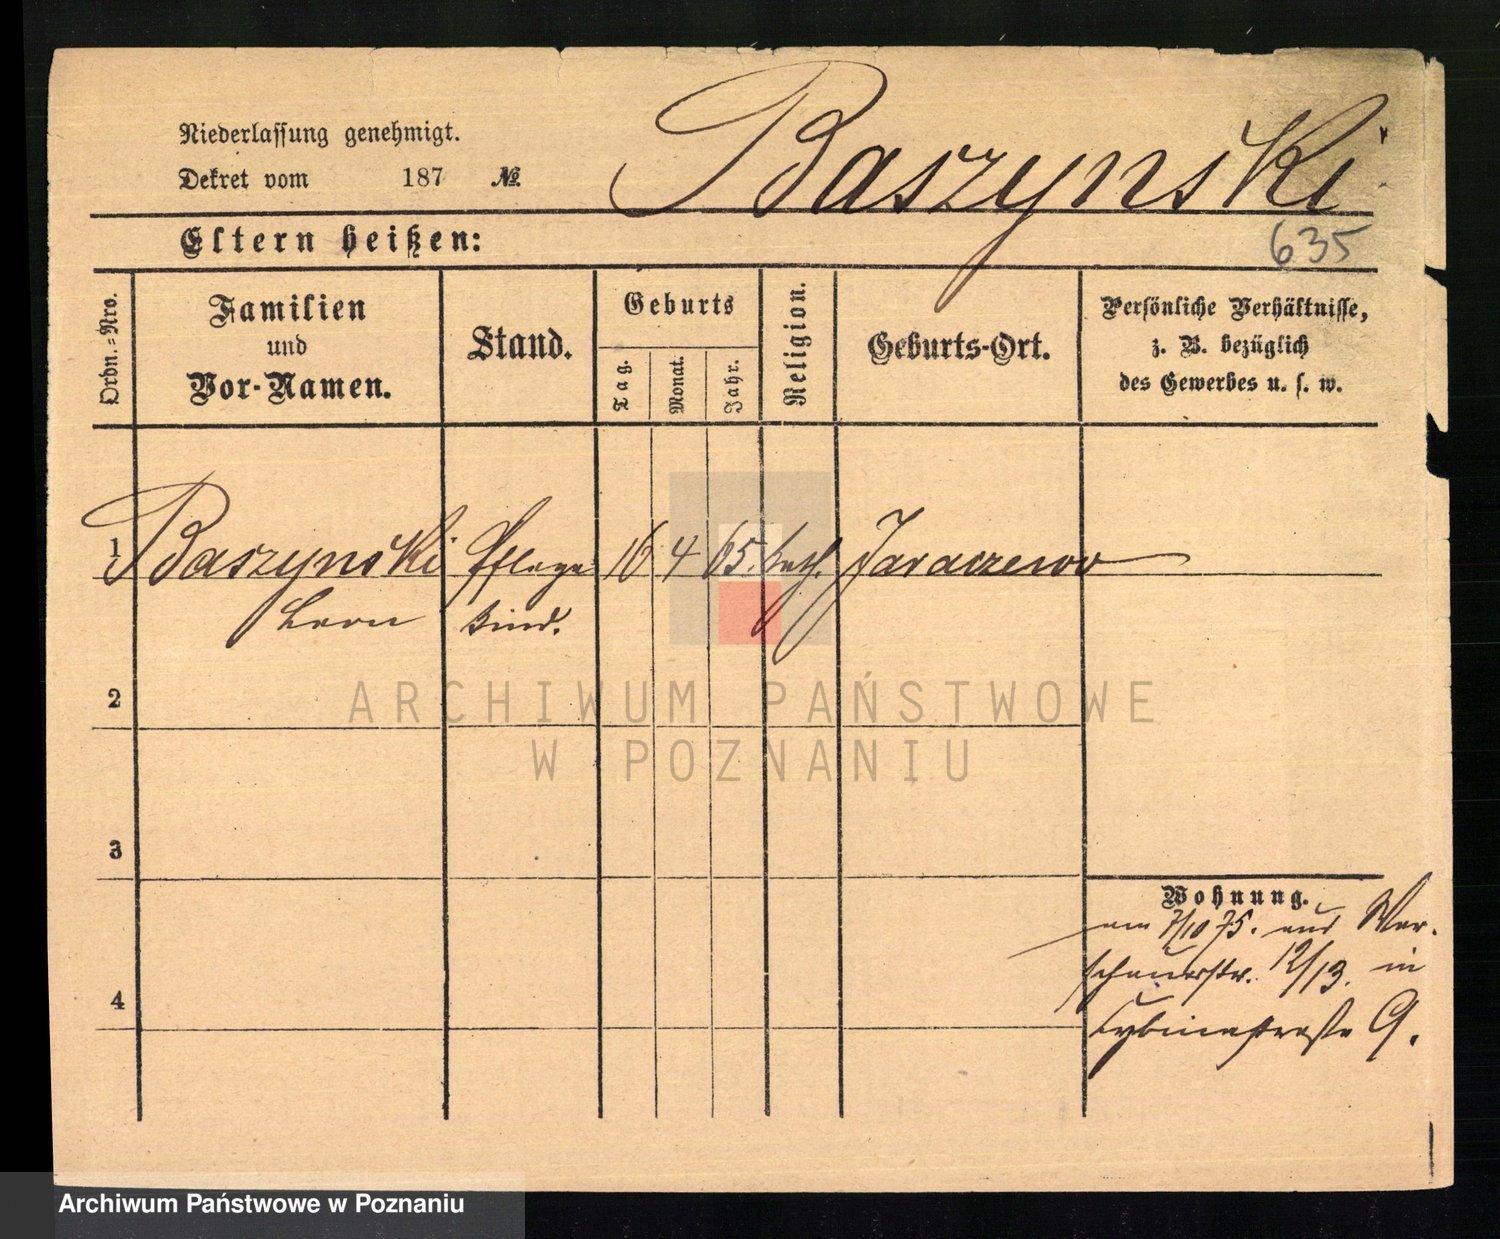 Baszynski
Niederlassung genehmigt.
Dekret vom 187 №
635
Eltern heißen:
Ordn.=Nro.
Familien
und
Vor-Namen.
Stand.
Geburts
Tag.
Monat.
Jahr.
Religion.
Geburts-Ort.
Persönliche Verhältnisse,
z. B. bezüglich
des Gewerbes u. s. w.
1 Baszynski Pflege 16 4 65. kath. Jaraczewo
Leon kind.
2
3
4
Wohnung.
am 7/10 75. aus War-
schauerstr. 12/13. in
Cybinastraße 9.
ARCHIWUM PAŃSTWOWE
W POZNANIU
Archiwum Państwowe w Poznaniu